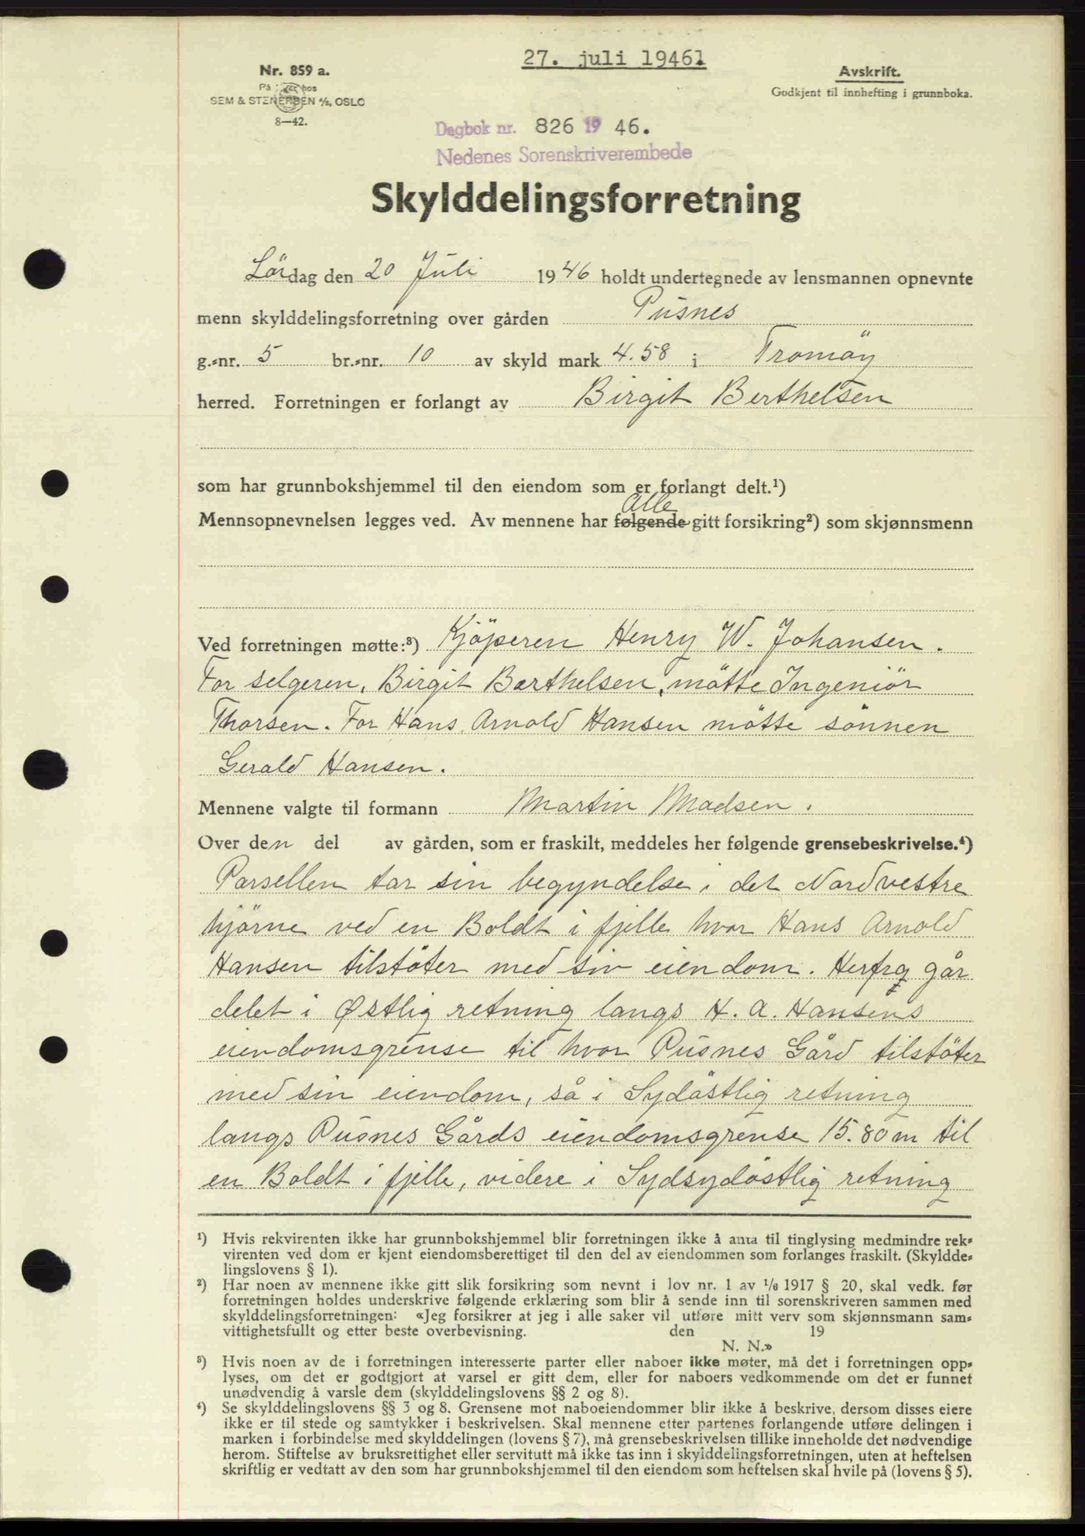 27. juli 1946!
Nr. 859 a.
På lager hos
SEM & STENERSEN A/S, OSLO
8—42.
Avskrift.
Godkjent til innhefting i grunnboka.
Dagbok nr. 826 19 46.
Nedenes Sorenskriverembede
Skylddelingsforretning
Lördag den 20 Juli 1946 holdt undertegnede av lensmannen opnevnte
menn skylddelingsforretning over gården Pusnes
g.-nr. 5 br.-nr. 10 av skyld mark 4.58 i Tromöy
herred. Forretningen er forlangt av Birgit Berthelsen
som har grunnbokshjemmel til den eiendom som er forlangt delt.¹)
Alle
Mennsopnevnelsen legges ved. Av mennene har følgende gitt forsikring²) som skjønnsmenn
Ved forretningen møtte:³) Kjöperen Henry W. Johansen.
For selgeren, Birgit Barthelsen, mötte Ingeniör
Thorsen. For Hans Arnold Hansen mötte sönnen
Gerald Hansen.
Mennene valgte til formann Martin Madsen.
Over den del av gården, som er fraskilt, meddeles her følgende grensebeskrivelse.⁴)
Parsellen tar sin begyndelse i det Nordvestre
hjörne ved en Boldt i fjelle hvor Hans Arnold
Hansen tilstöter med sin eiendom. Herfra går
delet i Østlig retning langs H. A. Hansens
eiendomsgrense til hvor Pusnes Gård tilstöter
med sin eiendom, så i Sydöstlig retning
langs Pusnes Gårds eiendomsgrense 15.80 m til
en Boldt i fjelle, videre i Sydsydöstlig retning
¹) Hvis rekvirenten ikke har grunnbokshjemmel blir forretningen ikke å anta til tinglysing medmindre rek-
virenten ved dom er kjent eiendomsberettiget til den del av eiendommen som forlanges fraskilt. (Skyldde-
lingslovens § 1).
²) Har noen av mennene ikke gitt slik forsikring som nevnt i lov nr. 1 av 1/6 1917 § 20, skal vedk. før
forretningen holdes underskrive følgende erklæring som blir å sende inn til sorenskriveren sammen med
skylddelingsforretningen: «Jeg forsikrer at jeg i alle saker vil utføre mitt verv som skjønnsmann sam-
vittighetsfullt og etter beste overbevisning. den 19
N. N.»
³) Hvis noen av de i forretningen interesserte parter eller naboer ikke møter, må det i forretningen opp-
lyses, om det er godtgjort at varsel er gitt dem, eller for naboers vedkommende om det er funnet
unødvendig å varsle dem (skylddelingslovens §§ 2 og 8).
⁴) Se skylddelingslovens §§ 3 og 8. Grensene mot naboeiendommer blir ikke å beskrive, dersom disses eiere
ikke er til stede og samtykker i beskrivelsen. Skal mennene etter partenes forlangende utføre delingen i
marken i forbindelse med skylddelingen (lovens § 7), må grensebeskrivelsen tillike inneholde det nødvendige
herom. Stiftelse av bruksrettighet eller servitutt må ikke tas inn i skylddelingsforretningen, uten at heftelsen
skriftlig er vedtatt av den som har grunnbokshjemmel til den eiendom som heftelsen skal hvile på (lovens § 5).